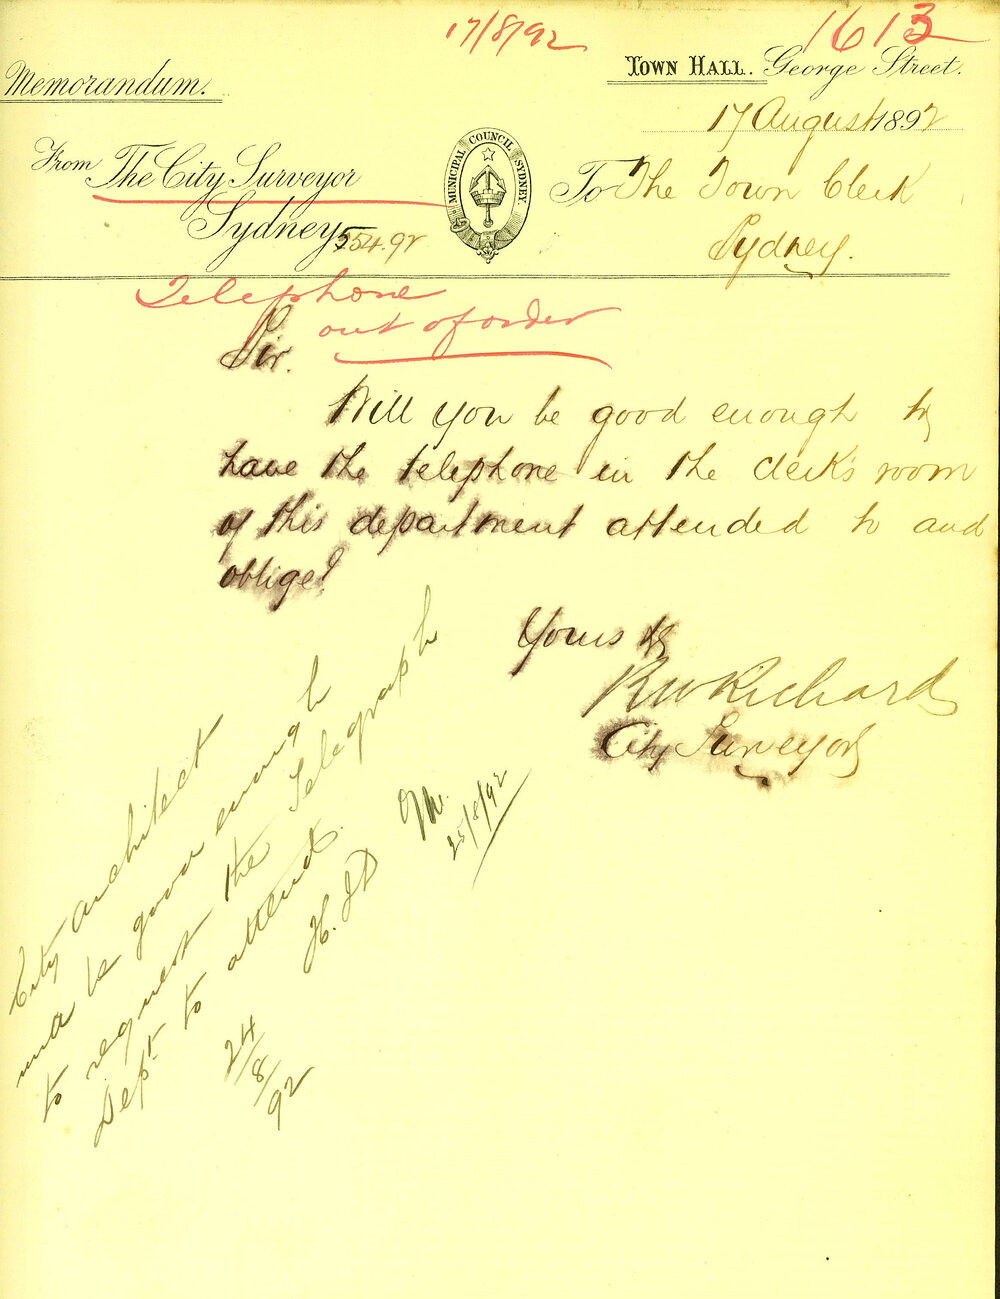 17/8/92
1613
Memorandum.
TOWN HALL. George Street.
17 August 1892
From The City Surveyor
Sydney 554.92
MUNICIPAL COUNCIL SYDNEY
To The Town Clerk
Sydney.
Telephone
out of order
Sir.
Will you be good enough to
have the telephone in the clerk's room
of this department attended to and
oblige!
Yours &c
RWRichards
City Surveyor
City Architect
will be good enough
to request the Telegraph
Dept to attend.
H.J.D
24/8/92
25/8/92